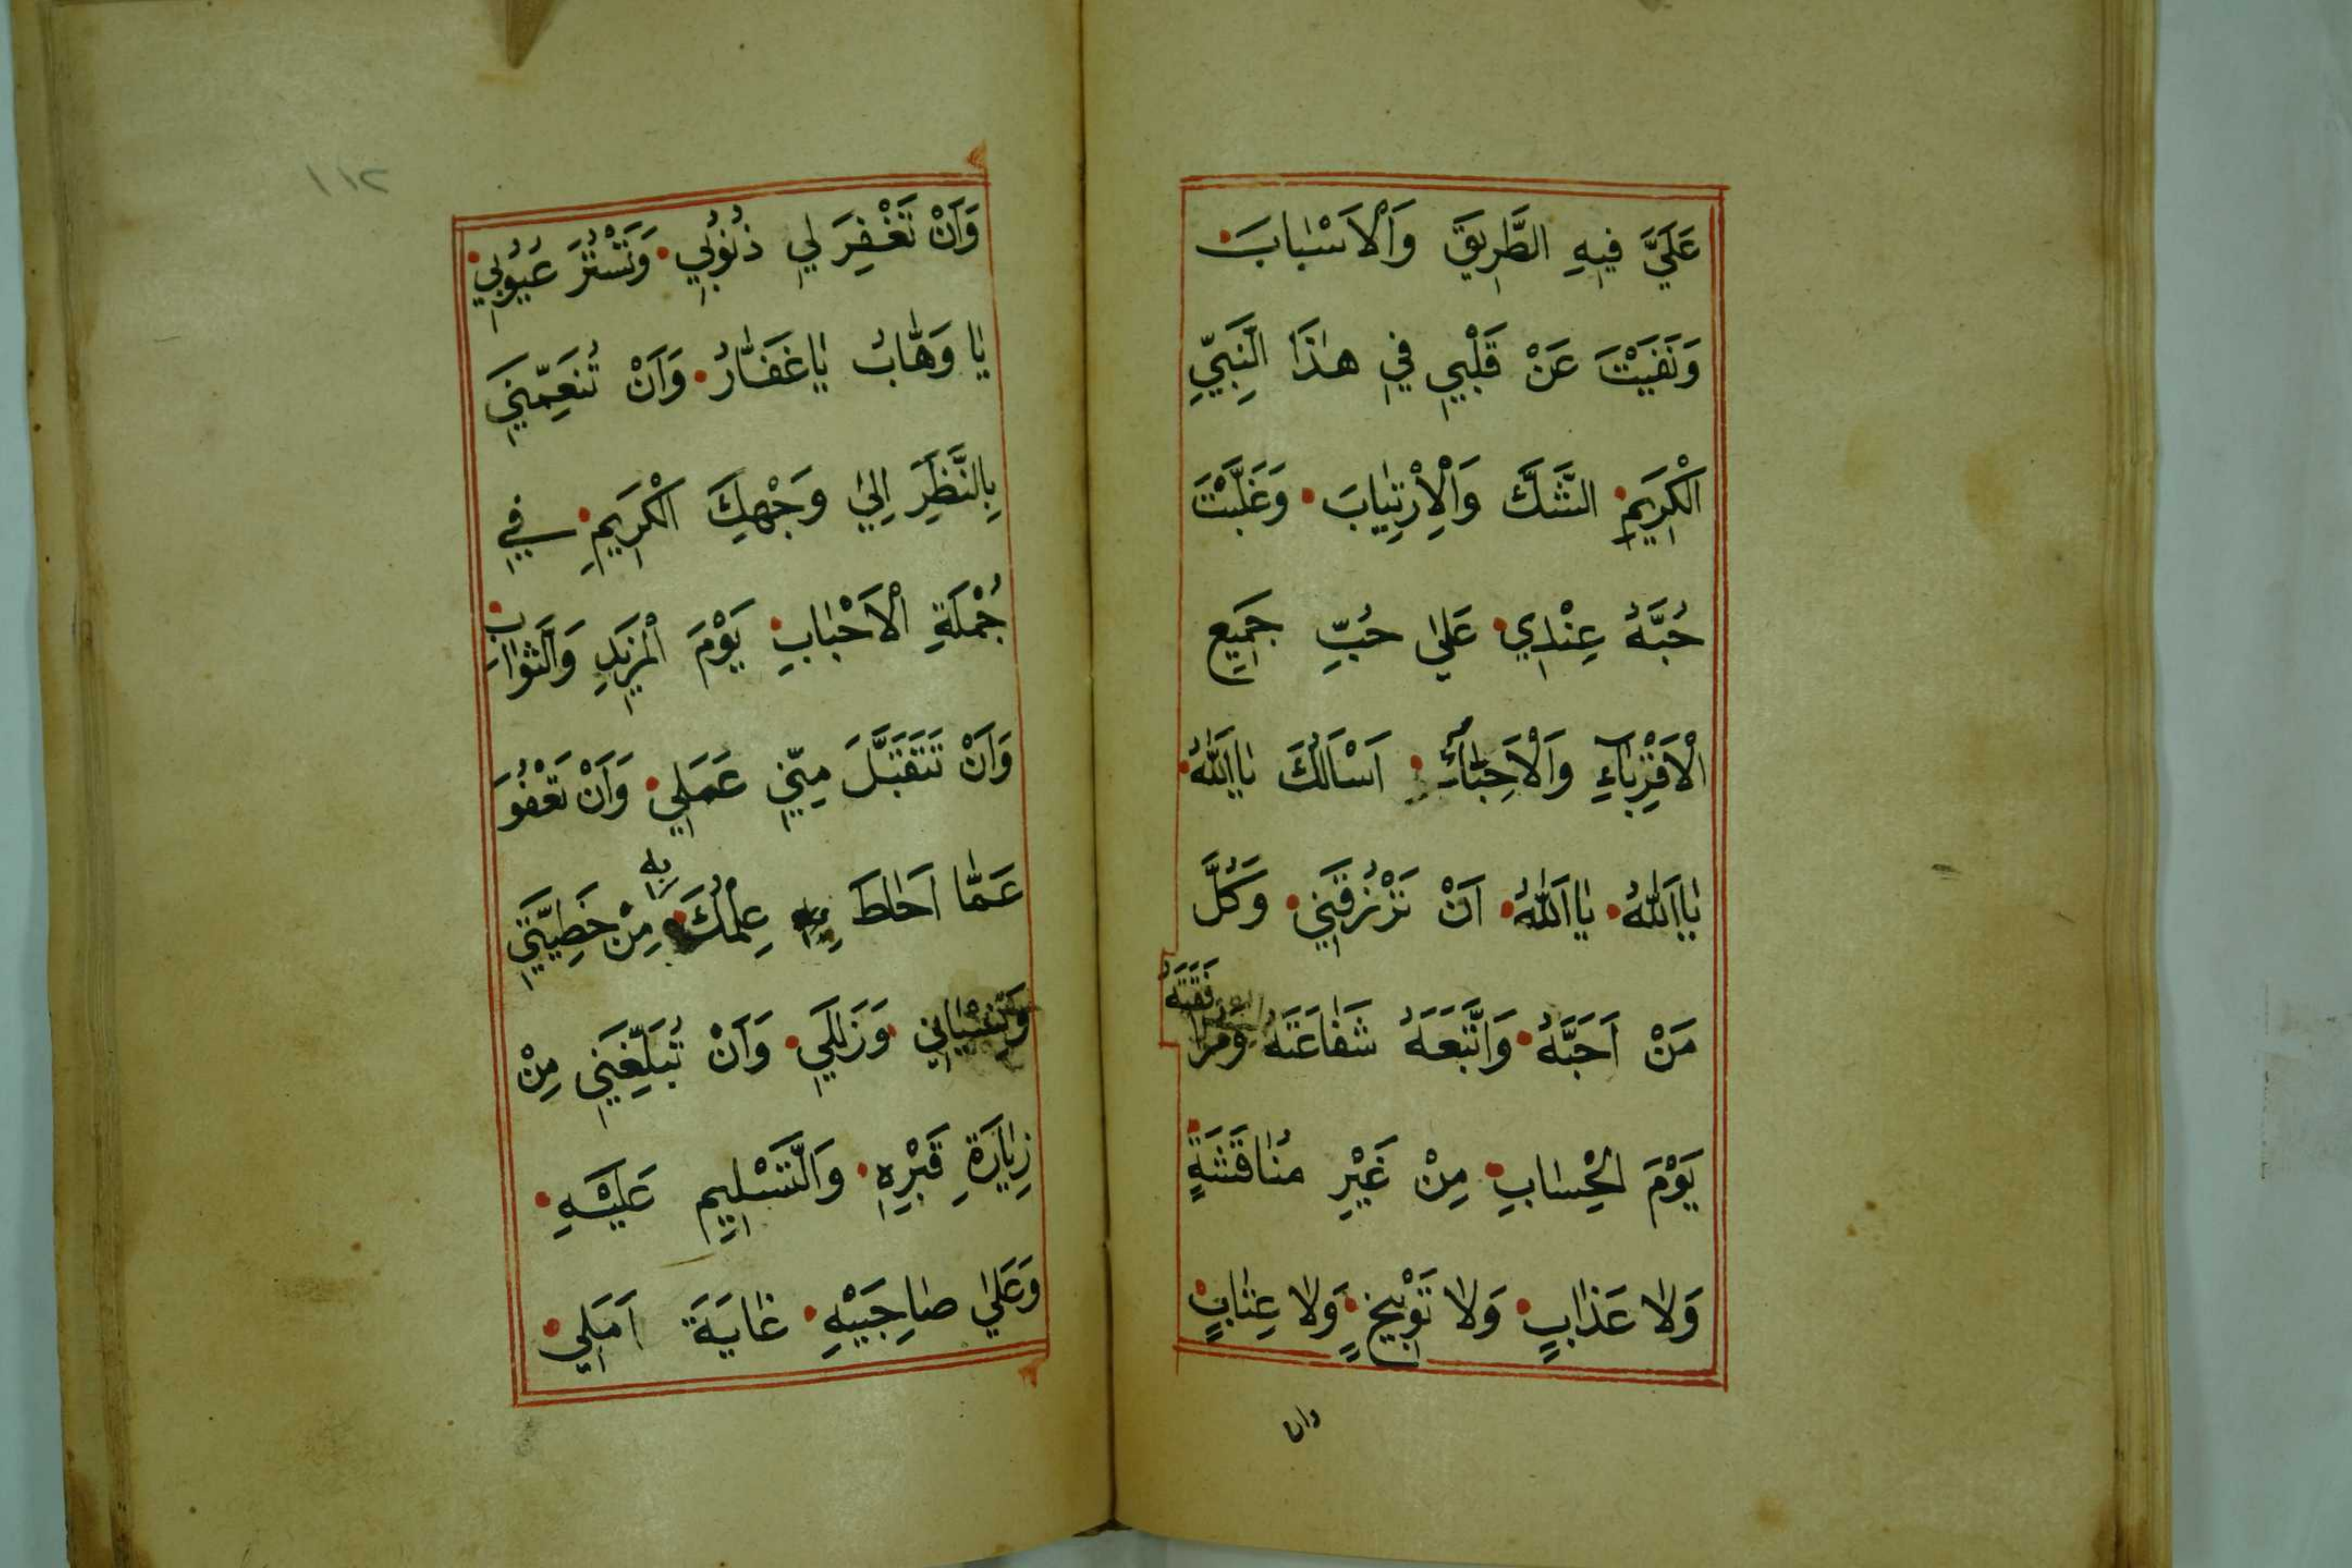 عَلَيَّ فِيهِ الطَّرِيقَ وَالْاَسْبَابَ
وَنَفَيْتَ عَنْ قَلْبِي فِي هٰذَا النَّبِيِّ
الْكَرِيمِ الشَّكَّ وَالْاِرْتِيَابَ وَغَلَّبْتَ
حُبَّهُ عِنْدِي عَلٰى حُبِّ جَمِيعِ
الْاَقْرِبَآءِ وَالْاَحِبَّآءِ اَسْاَلُكَ يَا اَللّٰهُ
يَا اَللّٰهُ يَا اَللّٰهُ اَنْ تَرْزُقَنِي وَكُلَّ
مَنْ اَحَبَّهُ وَاتَّبَعَهُ شَفَاعَتَهُ وَمُرَافَقَتَهُ
يَوْمَ الْحِسَابِ مِنْ غَيْرِ مُنَاقَشَةٍ
وَلَا عَذَابٍ وَلَا تَوْبِيخٍ وَلَا عِتَابٍ
وان
١١٢
وَاَنْ تَغْفِرَ لِي ذُنُوبِي وَتَسْتُرَ عُيُوبِي
يَا وَهَّابُ يَا غَفَّارُ وَاَنْ تُنَعِّمَنِي
بِالنَّظَرِ اِلٰى وَجْهِكَ الْكَرِيمِ فِي
جُمْلَةِ الْاَحْبَابِ يَوْمَ الْمَزِيدِ وَالثَّوَابِ
وَاَنْ تَتَقَبَّلَ مِنِّي عَمَلِي وَاَنْ تَعْفُوَ
عَمَّا اَحَاطَ عِلْمُكَ بِهِ مِنْ خَطِيئَتِي
وَنِسْيَانِي وَزَلَلِي وَاَنْ تُبَلِّغَنِي مِنْ
زِيَارَةِ قَبْرِهِ وَالتَّسْلِيمِ عَلَيْهِ
وَعَلٰى صَاحِبَيْهِ غَايَةَ اَمَلِي